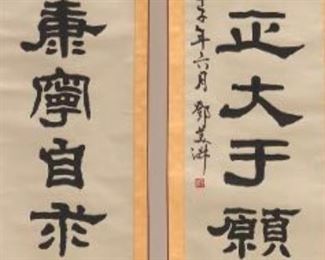 正大于願
子年六月鄧芝浒
康寧自求